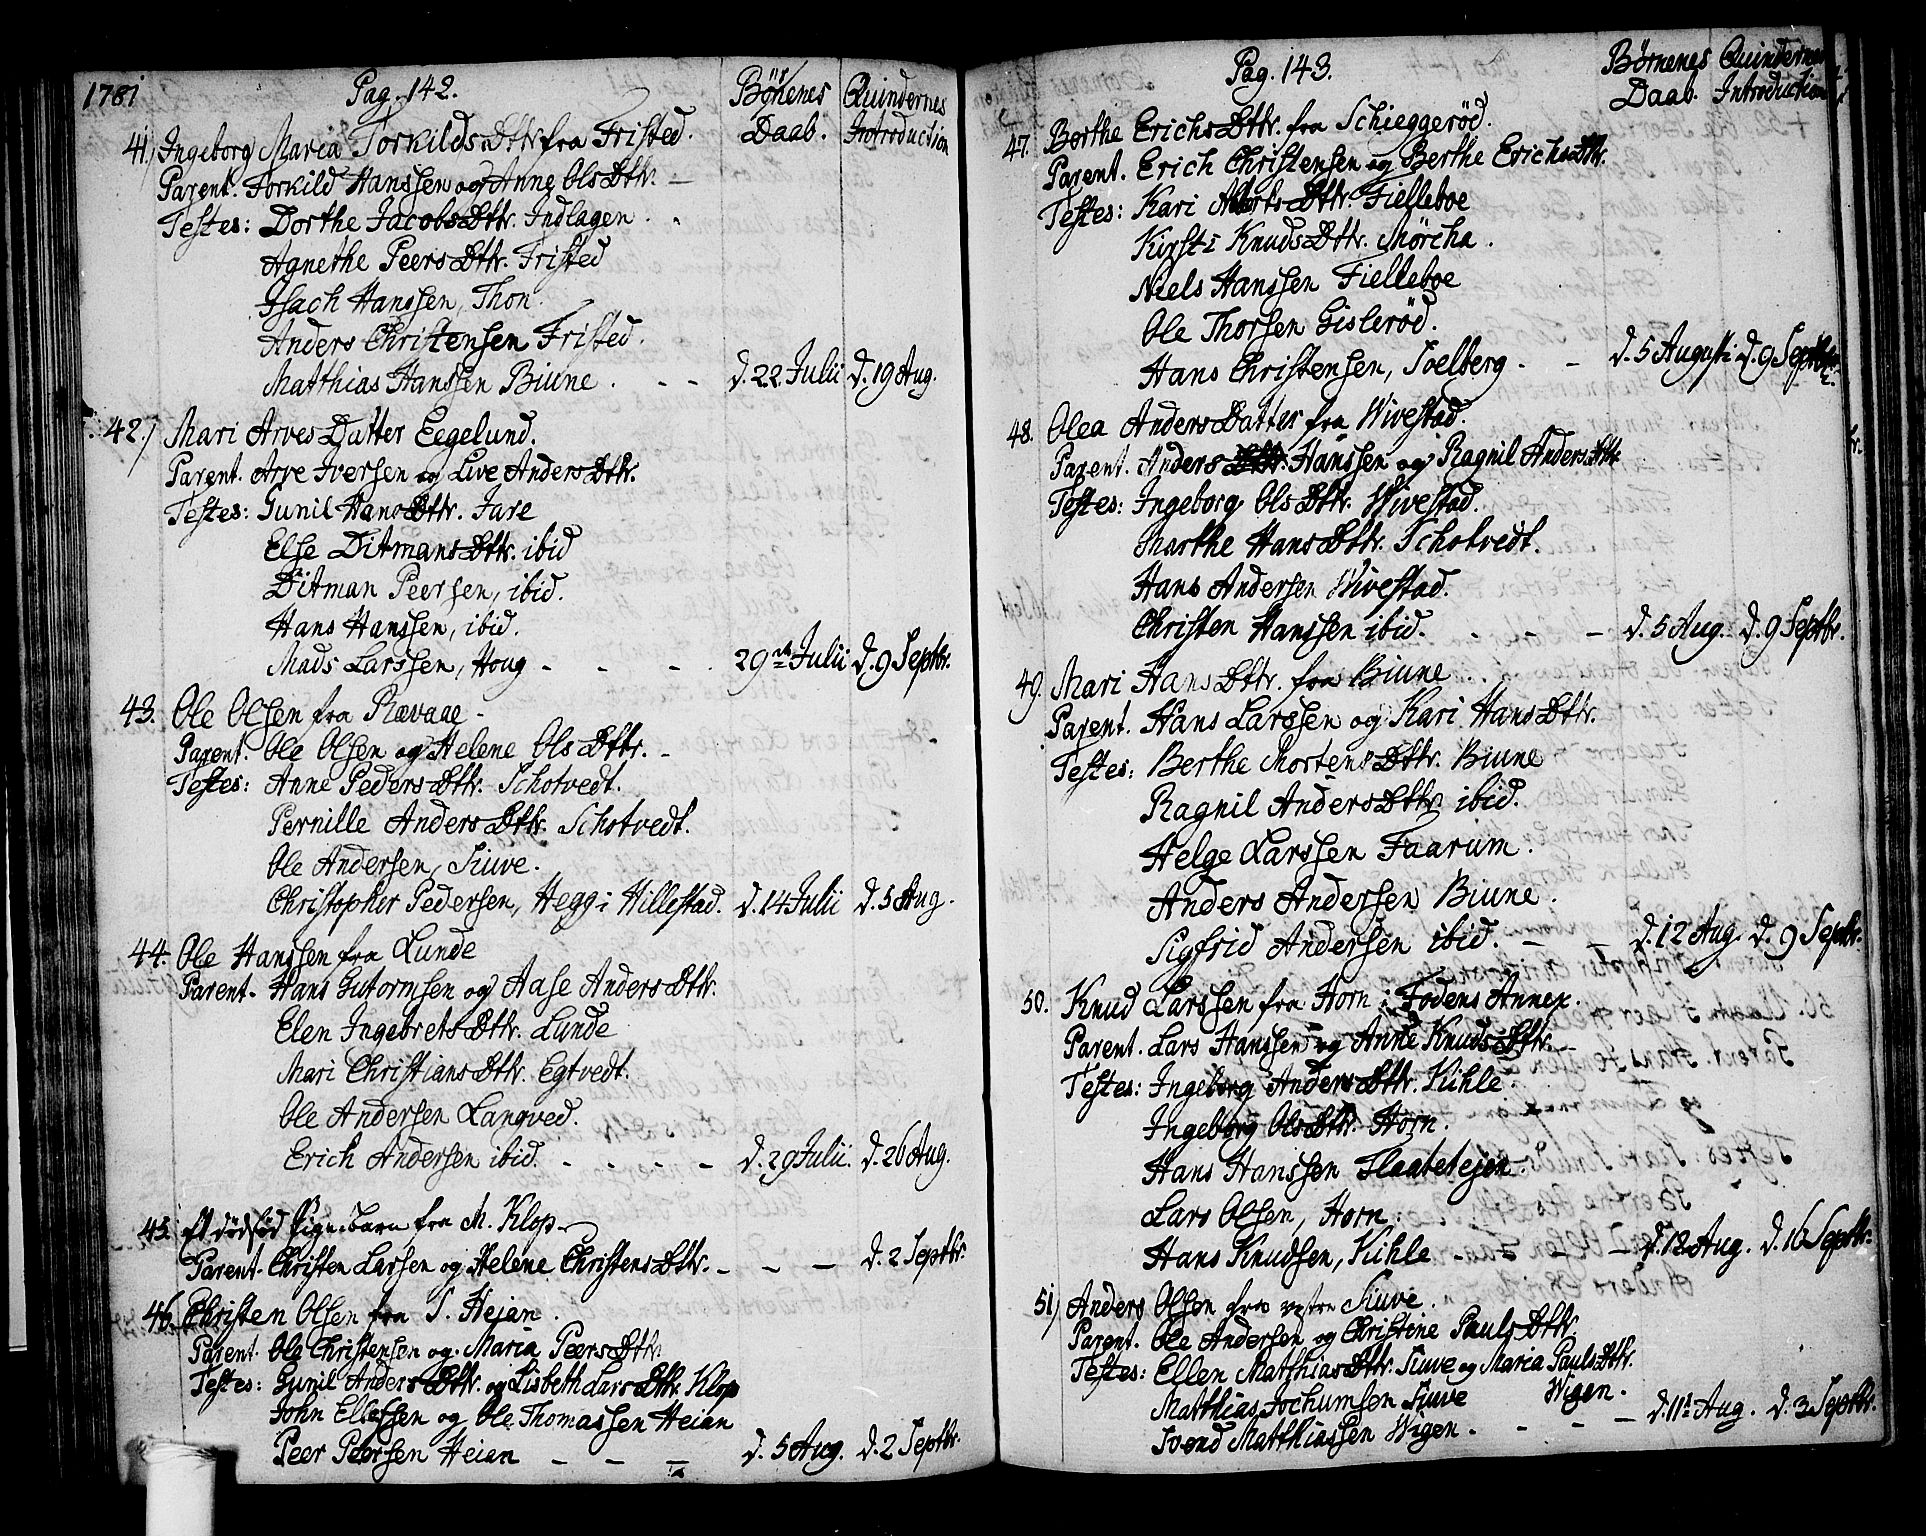 1781
Pag. 142.
Börnenes Daab.
Quindernes Introduction
41) Ingeborg Maria TorkildsDttr fra Fristed.
Parent. Torkild Hanssen og Anne OlsDttr. –
Testes: Dorthe JacobsDttr. Indlagen.
Agnethe PeersDttr. Fristed
Isach Hanssen, Thon.
Anders Christensen Fristed.
Matthias Hanssen Biune. - - d. 22 Julii d. 19 Aug.
42.) Mari ArvesDatter Eegelund.
Parent. Arve Iversen og Live AndersDttr.
Testes: Gunil HansDttr. Jare
Else DitmansDttr. ibid
Ditman Peersen, ibid.
Hans Hanssen, ibid.
Mads Larssen, Houg - - - 29de Julii d. 9 Septbr.
43. Ole Olsen fra Rævaae -
Parent. Ole Olsen og Helene OlsDttr. -
Testes: Anne PedersDttr. Schotvedt.
Pernille AndersDttr. Schotvedt.
Ole Andersen, Siuve.
Christopher Pedersen, Hegg i Hillestad. d. 14 Julii d. 5 Aug.
44. Ole Hanssen fra Lunde
Parent. Hans Gutormsen og Aase AndersDttr.
Elen IngebretsDttr. Lunde
Mari ChristiansDttr. Egtvedt.
Ole Andersen Langved.
Erich Andersen ibid. - - - - d. 29 Julii. d. 26 Aug.
45. Et dödfød Pigebarn fra M. Klop -
Parent. Christen Larsen og Helene ChristensDttr. - - - d. 2 Septbr.
46. Christen Olsen fra S. Hejan.
Parent. Ole Christensen og Maria PeersDttr
Testes: Gunil AndersDttr. og Lisbeth LarsDttr. Klop
John Ellefsen og Ole Thomassen Heian
Peer Peersen Heian - - - d. 5 Aug. d. 2 Septbr.
Pag. 143.
Børnenes Daab.
Quindernes Introduction
47. Berthe ErichsDttr. fra Schieggerød.
Parent. Erich Christensen og Berthe ErichsDttr.
Testes: Kari Dttr. Fielleboe
Kirsti KnudsDttr. Mörcha.
Niels Hanssen Fielleboe
Ole Thorsen Gislerød.
Hans Christensen, Soelberg - - d. 5 Augusti d. 9 Septbr.
48. Olea AndersDatter fra Wivestad.
Parent. Anders Hanssen og Ragnil AndersDttr
Testes: Ingeborg OlsDttr. Wivestad.
Marthe HansDttr. Schotvedt.
Hans Andersen Wivestad.
Christen Hanssen ibid. - - - d. 5 Aug. d. 9 Septbr.
49. Mari HansDttr. fra Biune
Parent. Hans Larssen og Kari HansDttr.
Testes: Berthe MortensDttr. Biune
Ragnil AndersDttr ibid.
Helge Larssen Faarum.
Anders Andersen Biune.
Sigfrid Andersen ibid. - - d. 12 Aug. d. 9 Septbr.
50. Knud Larssen fra Horn i Fodens Annex.
Parent. Lars Hanssen og Anne KnudsDttr. -
Testes: Ingeborg AndersDttr. Kihle.
Ingeborg OlsDttr. Horn.
Hans Hanssen Flaatetejen.
Lars Olsen, Horn.
Hans Knudsen, Kihle - - - - d. 12 Aug. d. 16 Septbr.
51) Anders Olsen fra vestre Siuve.
Parent. Ole Andersen og Christine PaulsDttr
Testes: Ellen MatthiasDttr. Siuve og Maria PaulsDttr. Wigen.
Matthias Jochumsen Siuve
Svend Matthiassen Wigen. - - - d. 11te Aug. d. 3 Septbr.